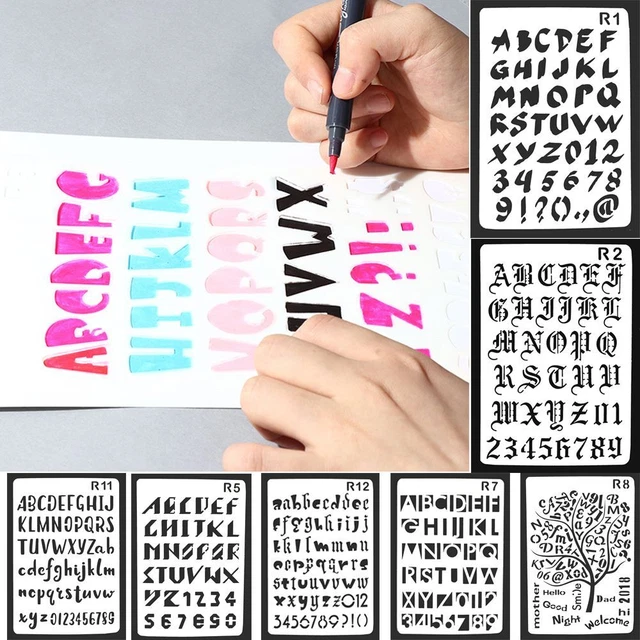 ABCDEFG
HIJKLM
NOPQRS
UVWX
Z?!
R1
ABCDEF
GHIJKL
MNOPQ
RSTUVW
XYZ012
345678
9!?().,@
R2
ABCDEF
GHIJKL
MNOPQ
RSTUV
WXYZ01
23456789
R11
ABCDEFGHIJ
KLMNOPQRS
TUVWXYZab
cdefghijklm
nopqrstuvw
xyz0123456789
R5
ABCDEF
GHIJKL
MNOPQR
STUVWX
YZ1234
567890
R12
aabbccddee
ffgghhiijj
kkllmmnn
ooppqqrr
ssttuuvvww
xxyyzz012
3456789?!()
R7
ABCDEF
GHIJKL
MNOPQ
RSTUV
XYZ012
3456789
R8
mother
Hello
Good
Night
Smile
Dad
Welcome
hi 2018